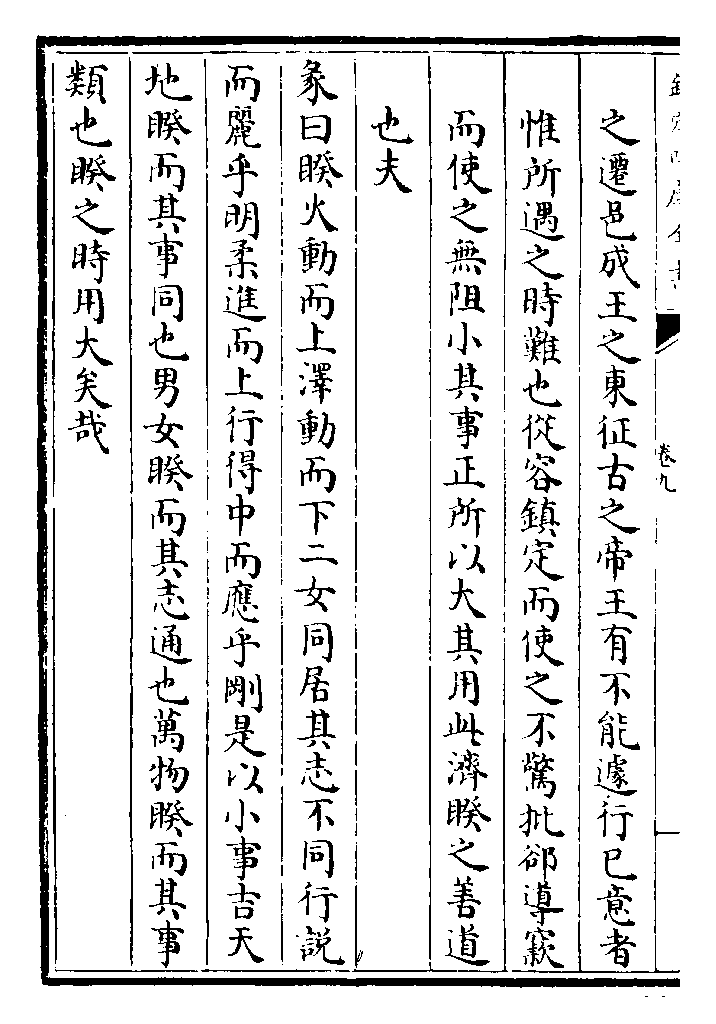 欽定四庫全書
卷九
之遷邑成王之東征古之帝王有不能遽行已意者
惟所遇之時難也從容鎮定而使之不驚批郤導窾
而使之無阻小其事正所以大其用此濟睽之善道
也夫
彖曰睽火動而上澤動而下二女同居其志不同行說
而麗乎明柔進而上行得中而應乎剛是以小事吉天
地睽而其事同也男女睽而其志通也萬物睽而其事
類也睽之時用大矣哉